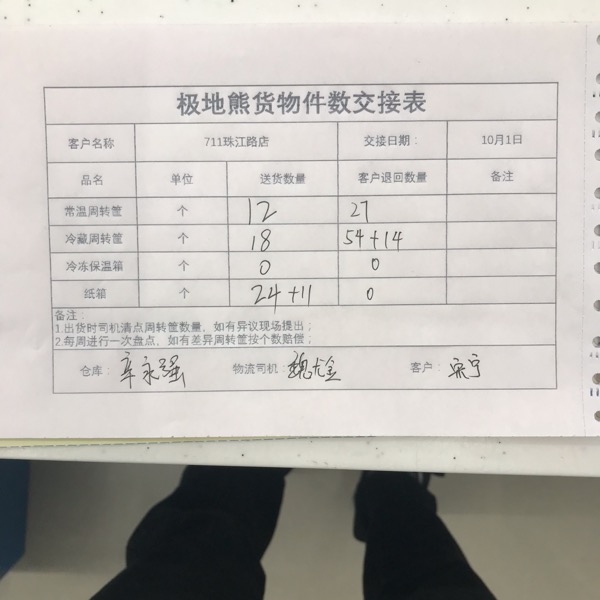 极地熊货物件数交接表
客户名称 711珠江路店 交接日期： 10月1日
品名 单位 送货数量 客户退回数量 备注
常温周转筐 个 12 27
冷藏周转筐 个 18 54+14
冷冻保温箱 个 0 0
纸箱 个 24+11 0
备注：
1.出货时司机清点周转筐数量，如有异议现场提出；
2.每周进行一次盘点，如有差异周转筐按个数赔偿；
仓库： 辛永强 物流司机： 客户：